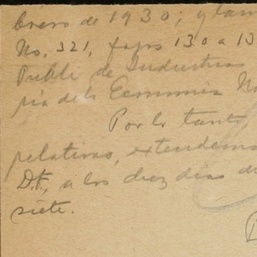 Enero de 1930; y tam
No. 321, fojas 130 a 13
Públ de Industria
ria de la Economía Na
Por lo tant
relativas, extendemos
D.F., a los diez días de
siete.